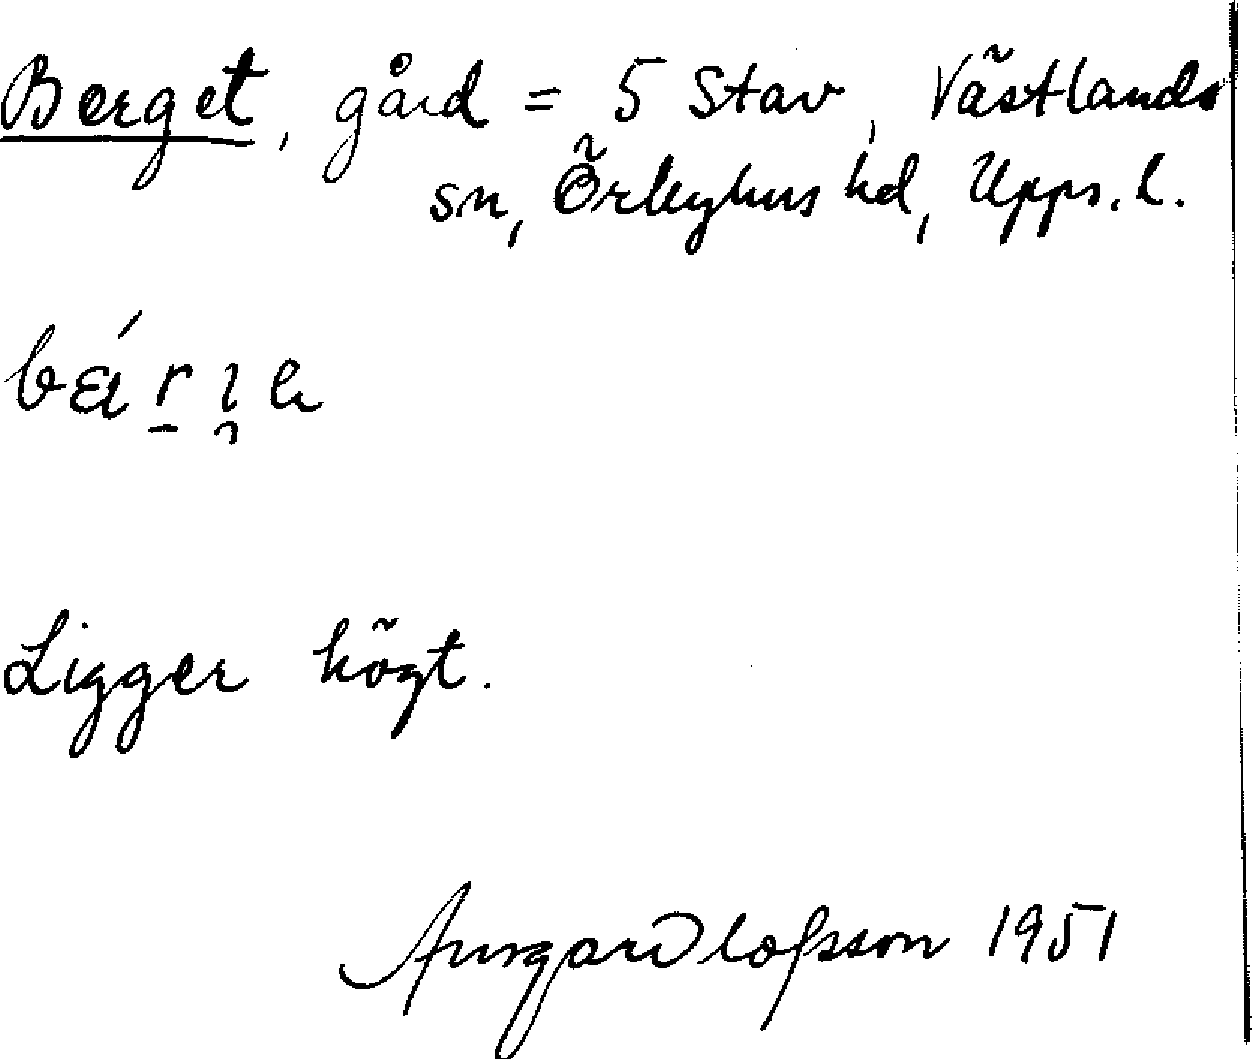 Berget, gård = 5 Stav, Västlands
sn, Örbyhus hd, Upps. l.
Ligger högt.
Ansgar Olofsson 1951